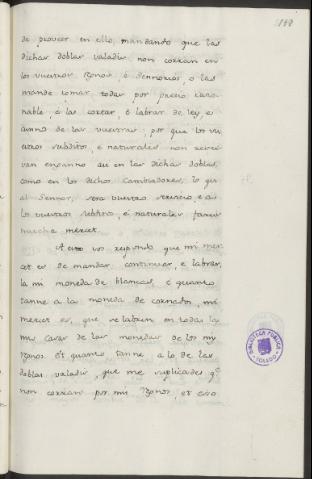 188
de proveer en ello, mandando que las
dichas doblas valadis non corran en
los vuestros Rgnos, é Sennorios, o las
mande tomar todas por precio razo-
nable, é las cortar, é labrar de ley, e
cunno de las vuestras; por que los vu-
estros subditos, é naturales non reciv-
van enganno asi en las dichas doblas,
como en los dichos Cambiadores, lo qual
al Sennor, será vuestro servicio, e a
los vuestros subditos, é naturales fareis
mucha mercet.
A esto vos respondo que mi mer-
cet es de mandar continuar, e labrar
la mi moneda de blancas, é quanto
tanne a la moneda de cornados, mi
mercet es, que se labren en todas las
mis casas de las monedas de los mis
Rgnos. Et quanto tanne a lo de las
doblas valadis, que me suplicades que
non corran por mis Rgnos, et esto
BIBLIOTECA PÚBLICA
TOLEDO